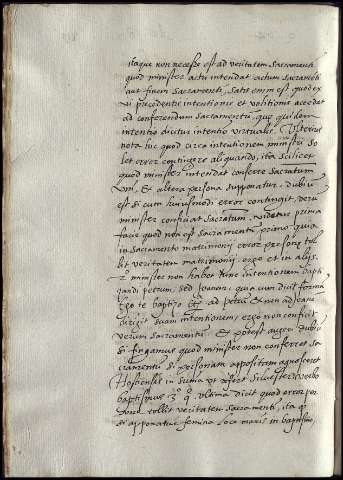 itaque non necesse est ad veritatem sacramenti
quod minister actu intendat actum sacramēti
aut finem sacramenti, satis enim est, quod ex
vi precedentis intentionis et volitionis accedat
ad conferendum sacramentū, que quidem
intentio dicitur intentio virtualis. Ulterius
nota hic quod circa intentionem ministri so
let error contingere aliquando, ita scilicet
quod minister intendat conferre sacratum
uni, et altera persona supponatur. dubiū
est si cum huiusmodi error contingit, verū
minister conficiat sacratum, videtur prima
facie quod non est sacramentū primo quia
in sacramento matrimonii error personę tol
lit veritatem matrimonii, ergo et in alijs.
2º minister non habet tunc intentionem bapti
zandi petrum, sed Joanem, quia cum dicit forma
ego te baptizo ad petrū et non ad Joanē
dirigit suam intentionem, ergo non conficit
verum sacramentū. Et potest augeri dubiū
si fingamus quod minister non conferret sa
cramentū si personam appositam agnosceret
Hostiensis in suma ut refert Silvester verbo
baptismus 3º q. ultima dicit quod error per
sonę tollit veritatem sacramenti, ita q
si apponatur femina loco maris in baptismo,